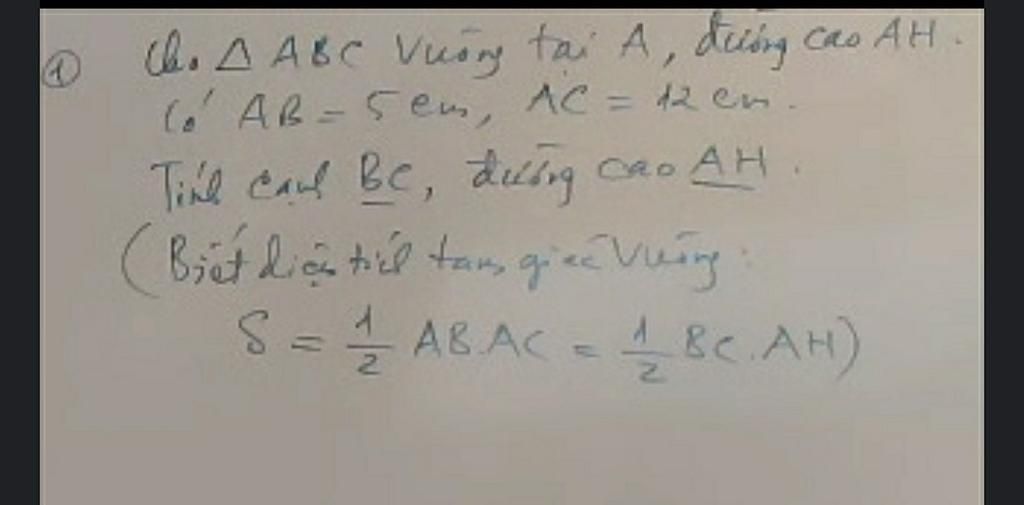 ① Cho Δ ABC vuông tại A, đường cao AH.
Có AB = 5 cm, AC = 12 cm.
Tính cạnh BC, đường cao AH.
(Biết diện tích tam giác vuông:
S = 1/2 AB.AC = 1/2 BC.AH)